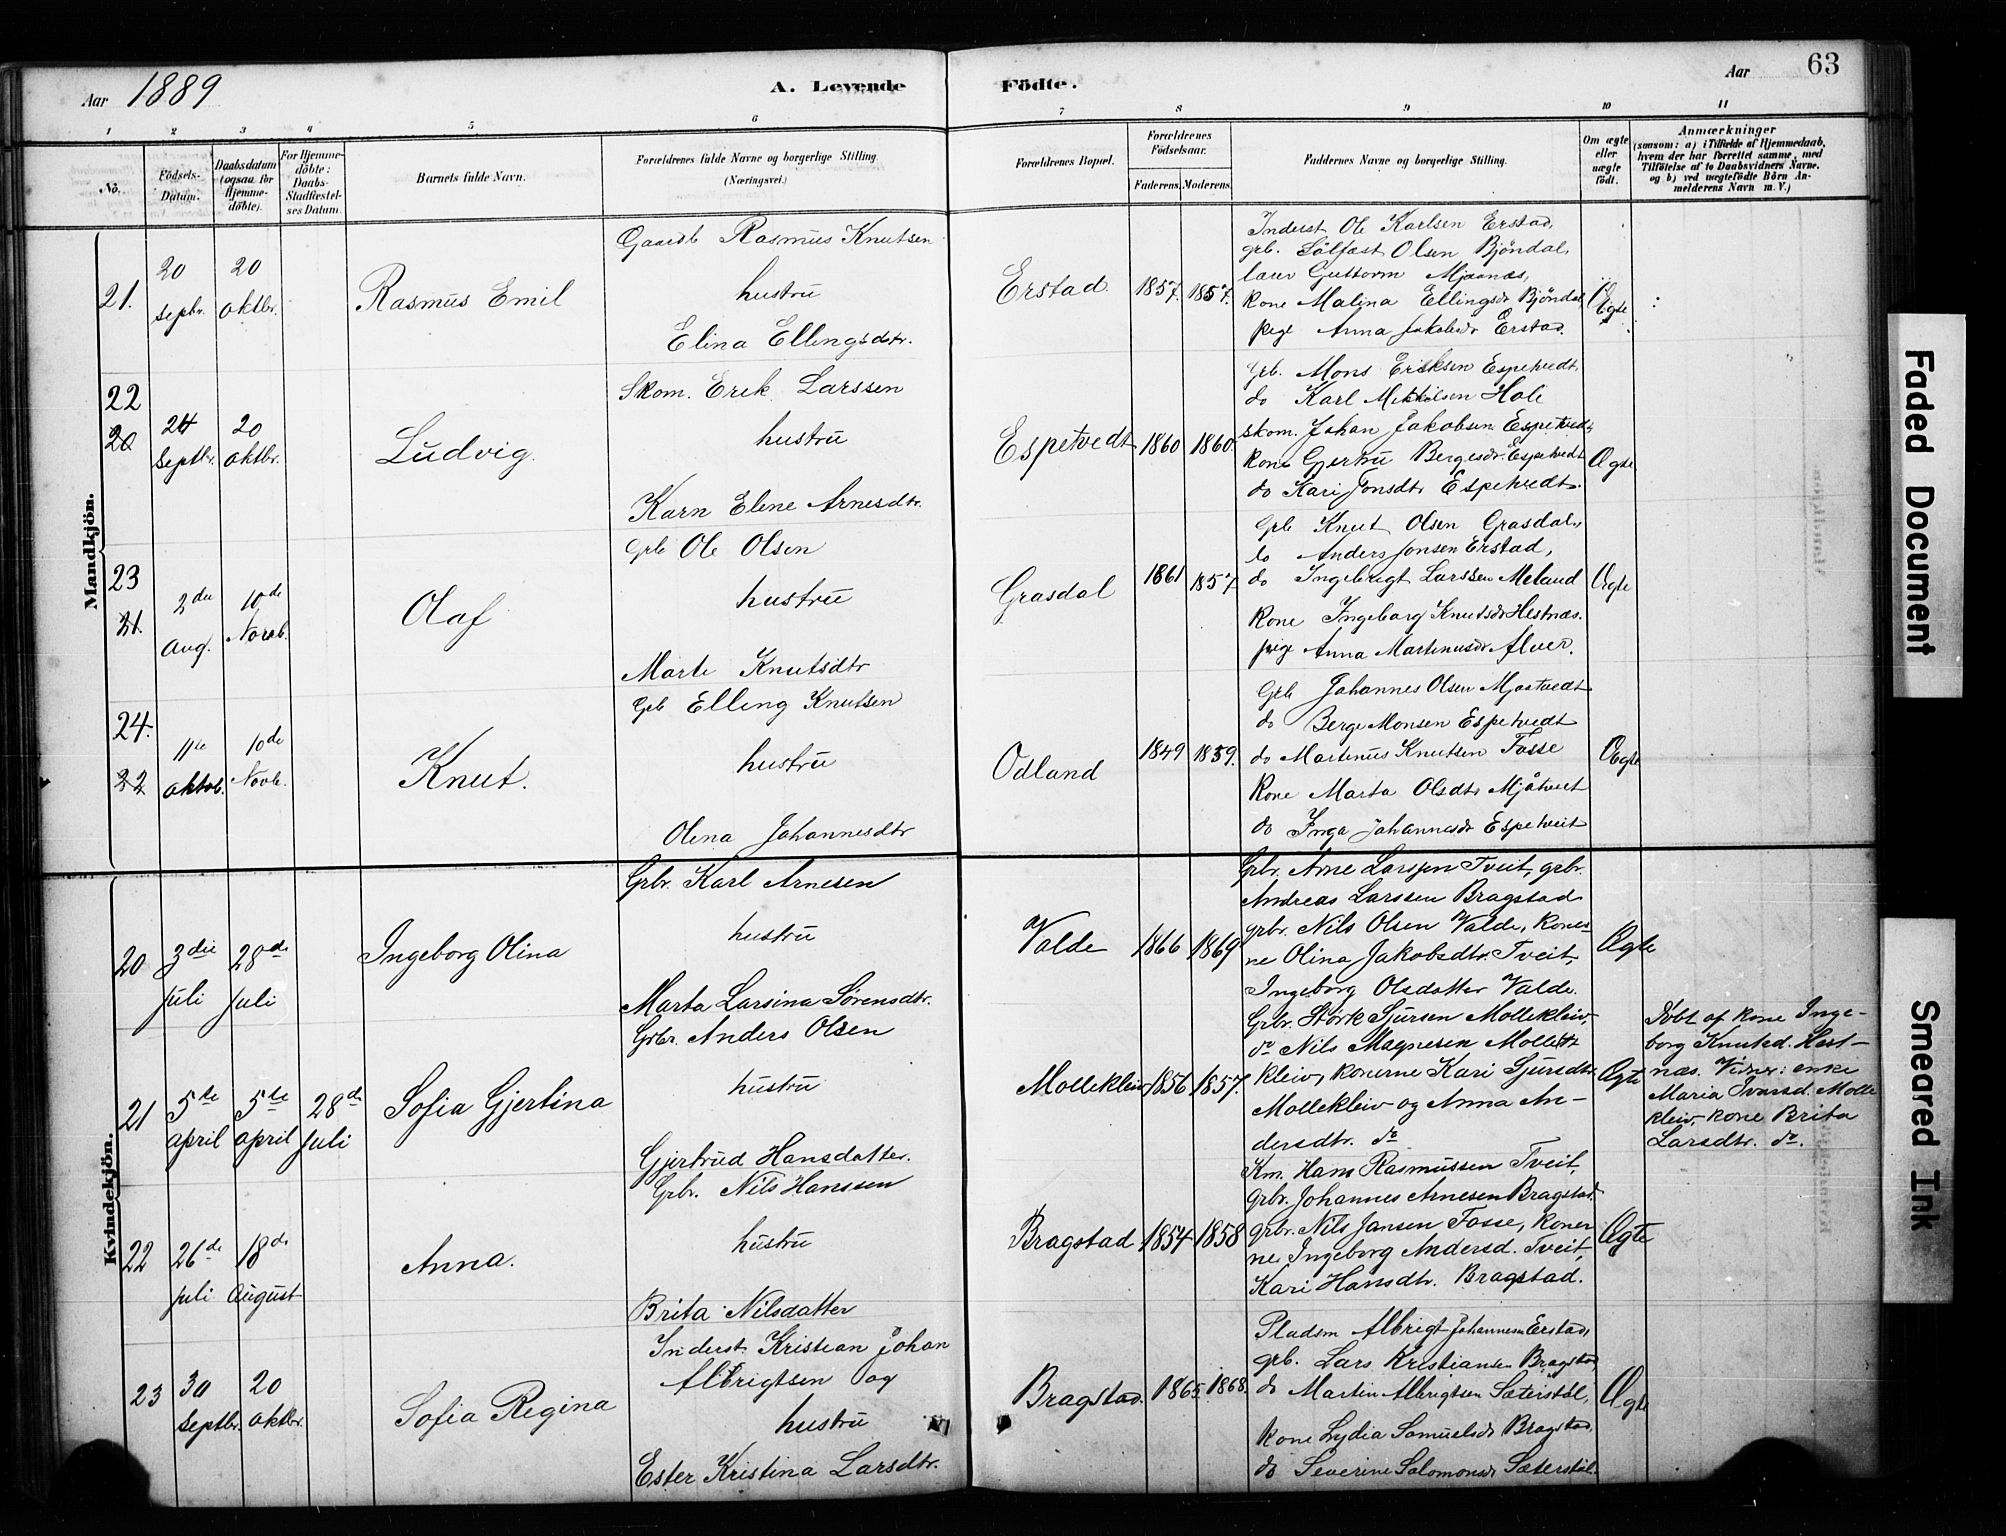 Aar 1889
A. Levende
Födte.
Aar
63
1 2 3 4 5 6 7 8 9 10 11
No.
Födsels-
Datum.
Daabsdatum
(ogsaa for
Hjemme-
döbte).
For Hjemme-
döbte:
Daabs-
Stadfæstel-
ses Datum.
Barnets fulde Navn.
Forældrenes fulde Navne og borgerlige Stilling
(Næringsvei.)
Forældrenes Bopæl.
Forældrenes
Födselsaar.
Faderens. Moderens.
Faddernes Navne og borgerlige Stilling.
Om ægte
eller
uægte
födt.
Anmærkninger
(saasom: a) i Tilfælde af Hjemmedaab,
hvem der har forrettet samme, med
Tilföielse af to Daabsvidners Navne.
og b) ved uægtefödte Börn An-
melderens Navn m. V.)
Mandkjön.
21.
20
Sepbr.
20
Oktbr.
Rasmus Emil
Gaardb Rasmus Knutsen
hustru
Elina Ellingsdtr.
Erstad
1857. 1857.
Inderst Ole Karlsen Erstad,
grb. Sölfast Olsen Bjöndal,
laur Guttorm Mjaanæs,
Kone Malina Ellingsdr Bjöndal,
pige Anna Jakobsdr Erstad.
Ægte
22
20
24
Septbr.
20
Oktbr.
Ludvig.
Skom. Erik Larssen
hustru
Karn Elene Arnesdtr.
Espetvedt
1860 1860.
Grb. Mons Eriksen Espetvedt,
do Karl Mikkelsen Hole
skom. Johan Jakobsen Espetvedt,
Kone Gjertru Bergesdr. Espetvedt
do Kari Jonsdtr Espetvedt.
Ægte
23
21.
2den
Aug.
10de
Novb.
Olaf
Grb Ole Olsen
hustru
Marte Knutsdtr
Grasdal
1861 1857
Grb Knut Olsen Grasdal,
do Anders Jonsen Erstad,
do Ingebrigt Larssen Meland
Kone Ingeborg Knutsdr Hestnæs.
pige Anna Martinusdr Alver.
Ægte
24.
22
11te
Oktob.
10de
Novb.
Knut.
Grb Elling Knutsen
hustru
Olena Johannesdtr
Odland
1849 1859.
Grb Johannes Olsen Mjøtvedt
do Berge Monsen Espetvedt
do Martinus Knutsen Fosse
Kone Marta Olsdtr Mjåtveit
do Inga Johannesdr Espetveit
Ægte
Kvindekjön.
20
3die
juli
28de
juli
Ingeborg Olina
Grbr. Karl Arnesen
hustru
Marta Larsina Sørensdtr.
Valde
1866 1869
Grbr. Arne Larssen Tveit, grbr.
Andreas Larssen Bragstad
grbr. Nils Olsen Valde, koner
ne Olina Jakobsdtr. Tveit,
Ingeborg Olsdatter Valde.
Ægte
21
5te
april
5te
april
28de
juli
Sofia Gjertina
Grbr. Anders Olsen
hustru
Gjertrud Hansdatter.
Mollekleiv
1856 1857.
Grbr. Størk Sjursen Mollekleiv,
do Nils Magnesen Molle
kleiv, konerne Kari Sjursdtr
Mollekleiv og Anna An-
dersdtr. do
Ægte
Døbt af kone Inge-
borg Knutsd. Hest-
næs. Vidner: enke
Maria Ivarsd. Molle
kleiv, kone Brita
Larsdtr. do.
22
26de
juli
18de
August
Anna.
Grbr. Nils Hanssen
hustru
Brita Nilsdatter
Bragstad
1854 1858
Km. Hans Rasmussen Tveit,
grbr. Johannes Arnesen Bragstad.
grbr. Nils Jansen Fosse, koner
ne Ingeborg Andersd. Tveit,
Kari Hansdtr. Bragstad.
Ægte
23
30
Septbr.
20
Oktbr.
Sofia Regina
Inderst. Kristian Johan
Albrigtsen og
hustru
Ester Kristina Larsdtr.
Bragstad.
1865. 1868.
Pladsm Albrigt Johannesn Erstad,
grb. Lars Kristiansen Bragstad
do Martin Albrigtsen Sæterstöl,
Kone Lydia Samuelsdr Bragstad,
do Severine Salomonsdr Sæterstöl.
Ægte
Faded Document
Smeared Ink